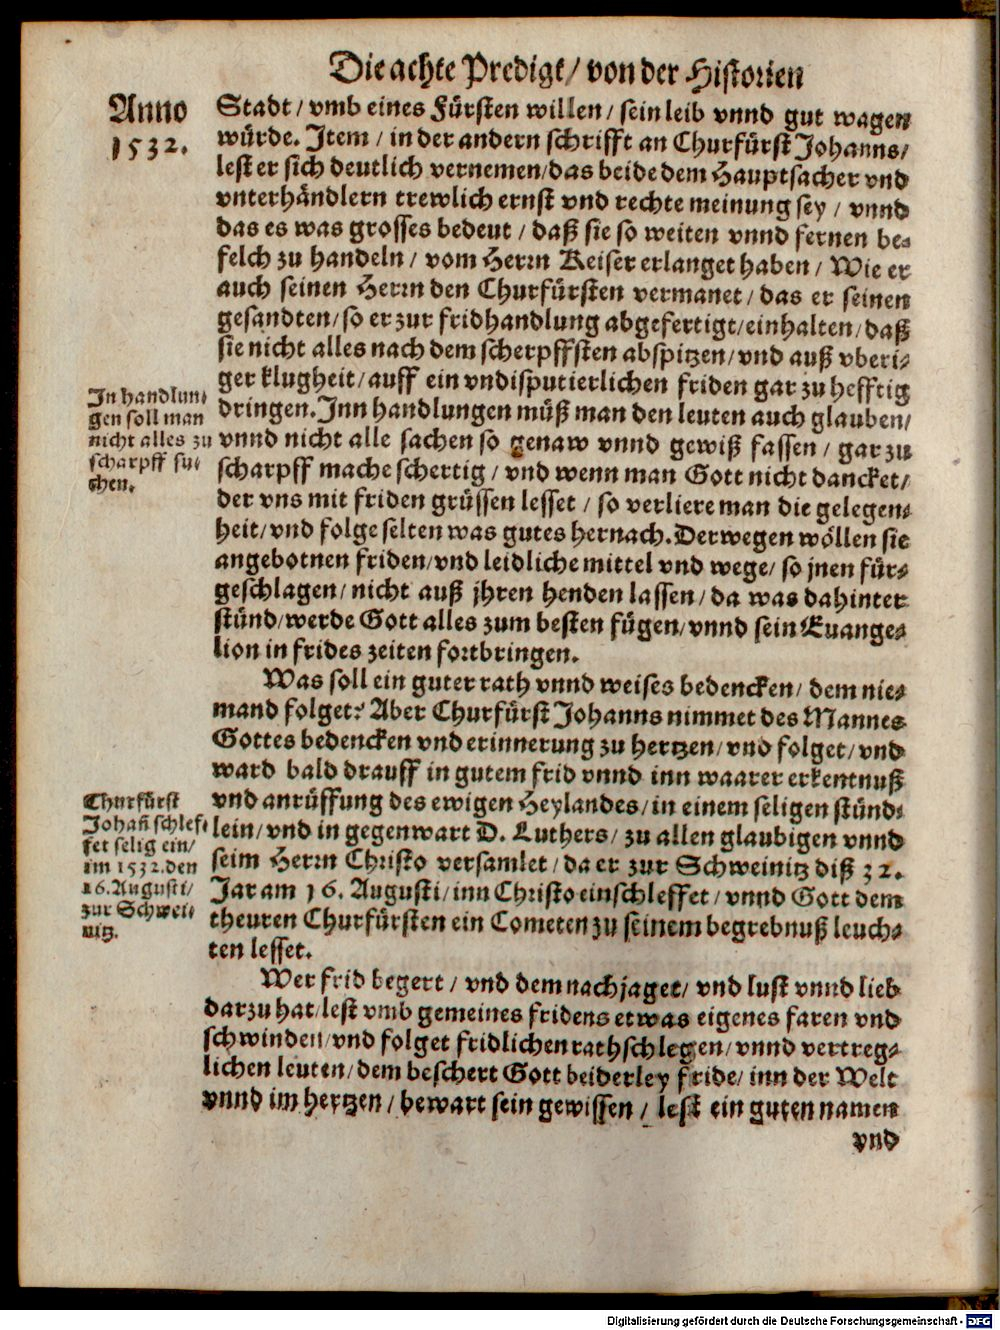 Die achte Predigt / von der Historien
Anno
1532.
Stadt / vmb eines Fürsten willen / sein leib vnnd gut wagen
würde. Item / in der andern schrifft an Churfürst Johanns /
lest er sich deutlich vernemen / das beide dem Hauptsacher vnd
vnterhändlern trewlich ernst vnd rechte meinung sey / vnnd
das es was grosses bedeut / daß sie so weiten vnnd fernen be-
felch zu handeln / vom Herrn Keiser erlanget haben / Wie er
auch seinen Herrn den Churfürsten vermanet / das er seinen
gesandten / so er zur fridhandlung abgefertigt / einhalten / daß
sie nicht alles nach dem scherpffsten abspitzen / vnd auß vberi-
ger klugheit / auff ein vndisputierlichen friden gar zu hefftig
In handlun-
gen soll man
nicht alles zu
scharpff su-
chen.
dringen. Inn handlungen müß man den leuten auch glauben /
vnnd nicht alle sachen so genaw vnnd gewiß fassen / gar zu
scharpff mache schertig / vnd wenn man Gott nicht dancket /
der vns mit friden grüssen lesset / so verliere man die gelegen-
heit / vnd folge selten was gutes hernach. Derwegen wöllen sie
angebotnen friden / vnd leidliche mittel vnd wege / so jnen für-
geschlagen / nicht auß jhren henden lassen / da was dahinter
stünd / werde Gott alles zum besten fügen / vnnd sein Euange-
lion in frides zeiten fortbringen.
Was soll ein guter rath vnnd weises bedencken / dem nie-
mand folget? Aber Churfürst Johanns nimmet des Mannes
Gottes bedencken vnd erinnerung zu hertzen / vnd folget / vnd
ward bald drauff in gutem frid vnnd inn waarer erkentnuß
Churfürst
Johañ schlef-
fet selig ein /
im 1532. den
16. Augusti /
zur Schwei-
nitz.
vnd anrüffung des ewigen Heylandes / in einem seligen stünd-
lein / vnd in gegenwart D. Luthers / zu allen glaubigen vnnd
seim Herrn Christo versamlet / da er zur Schweinitz diß 32.
Jar am 16. Augusti / inn Christo einschleffet / vnnd Gott dem
theuren Churfürsten ein Cometen zu seinem begrebnuß leuch-
ten lesset.
Wer frid begert / vnd dem nachjaget / vnd lust vnnd lieb
darzu hat / lest vmb gemeines fridens etwas eigenes faren vnd
schwinden / vnd folget fridlichen rathschlegen / vnnd vertreg-
lichen leuten / dem beschert Gott beiderley fride / inn der Welt
vnnd im hertzen / bewart sein gewissen / lest ein guten namen
vnd
Digitalisierung gefördert durch die Deutsche Forschungsgemeinschaft - DFG